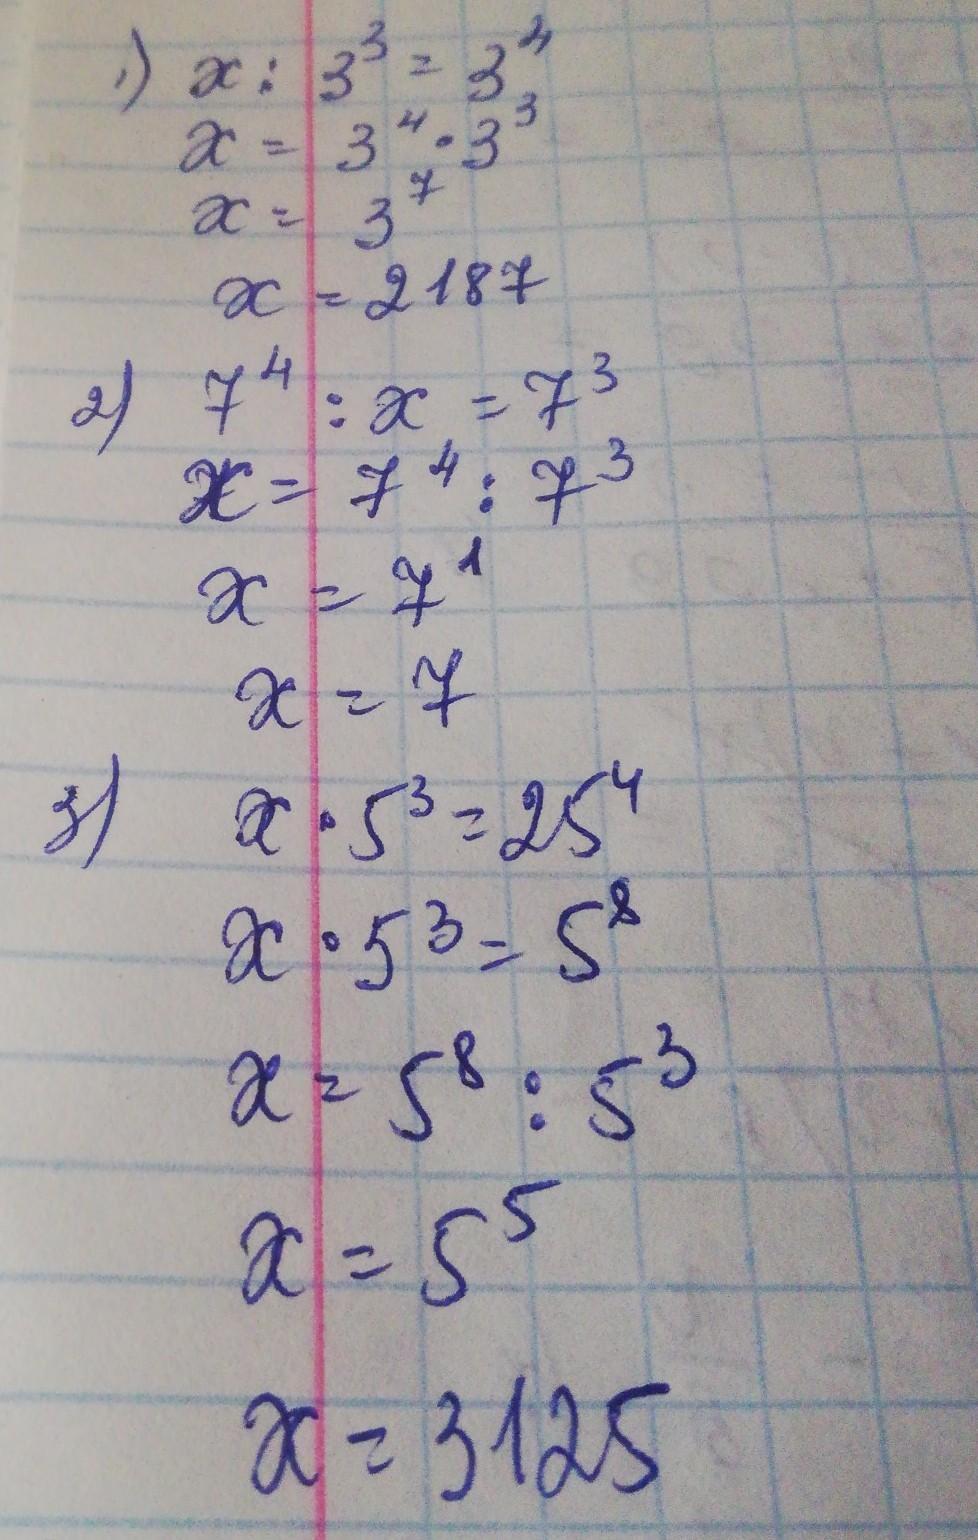 1) x : 3³ = 3⁴
x = 3⁴ · 3³
x = 3⁷
x = 2187
2) 7⁴ : x = 7³
x = 7⁴ : 7³
x = 7¹
x = 7
3) x · 5³ = 25⁴
x · 5³ = 5⁸
x = 5⁸ : 5³
x = 5⁵
x = 3125